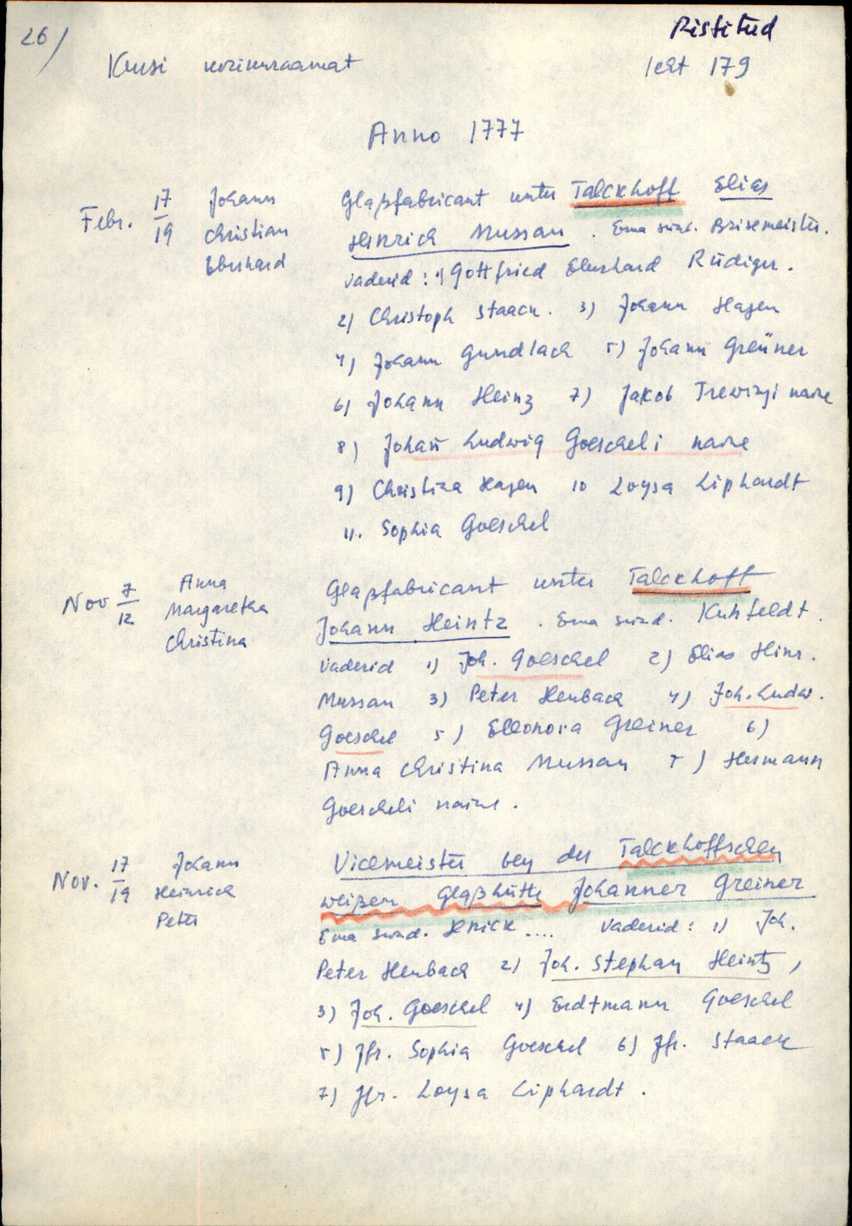 26)
Ristitud
Kursi kirikuraamat
leht 179
Anno 1777
Febr. 17/19 Johann Christian Eberhard
Glaßfabricant unter Talckhoff Elias
Heinrich Mussan. Ema sünd. Brisemeister.
vaderid: 1) Gottfried Eberhard Rüdiger.
2) Christoph Staack. 3) Johann Hagen
4) Johann Gundlach 5) Johann Greüner
6) Johann Heinz 7) Jakob Trewingi naine
8) Johan Ludwig Goescheli naine
9) Christina Hagen 10 Loysa Liphardt
11. Sophia Goeschel
Nov 7/12 Anna Margaretha Christina
Glaßfabricant unter Talckhoff
Johann Heintz. Ema sünd. Kuhfeldt.
vaderid 1) Joh. Goeschel 2) Elias Hinr.
Mussan 3) Peter Heubach 4) Joh. Ludw.
Goeschel 5) Elleonora Greiner 6)
Anna Christina Mussan 7) Hermann
Goescheli naine.
Nov. 17/19 Johann Heinrich Peter
Vicemeister bey der Talckhoffschen
weißen Glaßhütte Johanner Greiner
Ema sünd. Knick.... vaderid: 1) Joh.
Peter Heubach 2) Joh. Stephan Heintz,
3) Joh. Goeschel 4) Erdtmann Goeschel
5) Jfr. Sophia Goeschel 6) Jfr. Staack
7) Jfr. Loysa Liphardt.